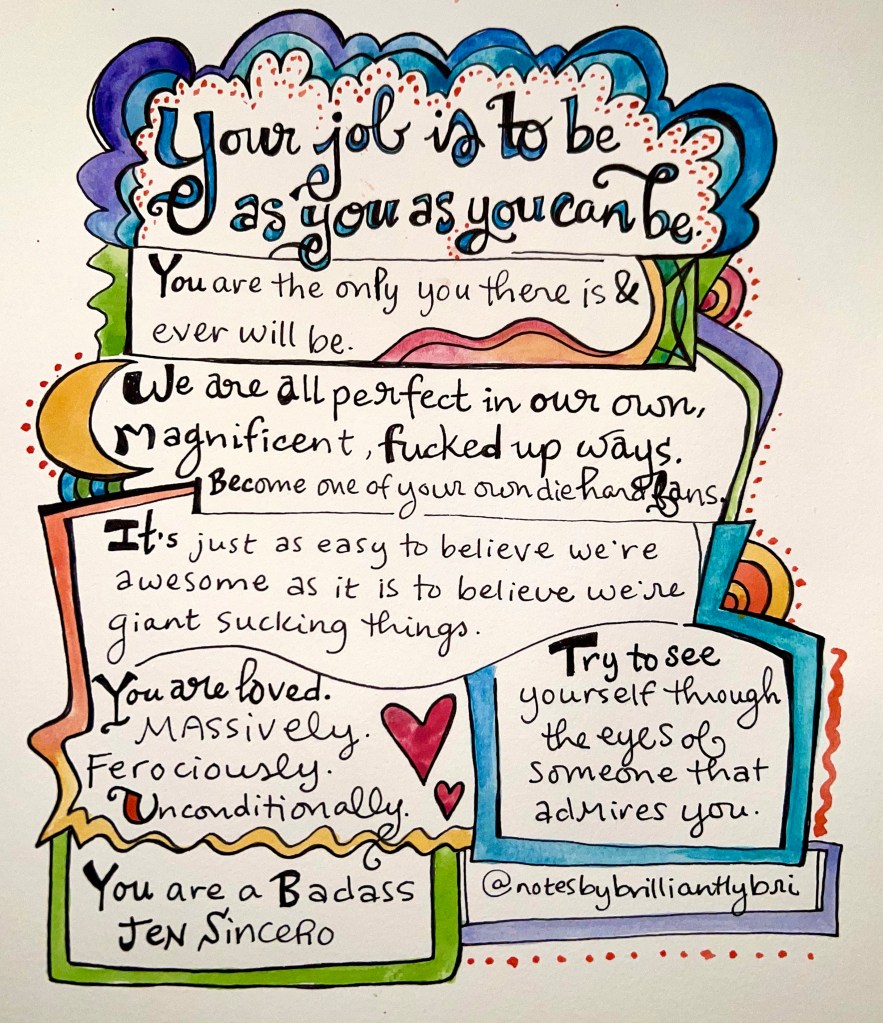 Your job is to be
as you as you can be.
You are the only you there is &
ever will be.
We are all perfect in our own,
Magnificent, fucked up ways.
Become one of your own diehard fans.
It's just as easy to believe we're
awesome as it is to believe we're
giant sucking things.
You are loved.
Massively.
Ferociously.
Unconditionally.
Try to see
yourself through
the eyes of
someone that
admires you.
You are a Badass
Jen Sincero
@notesbybrilliantlybri